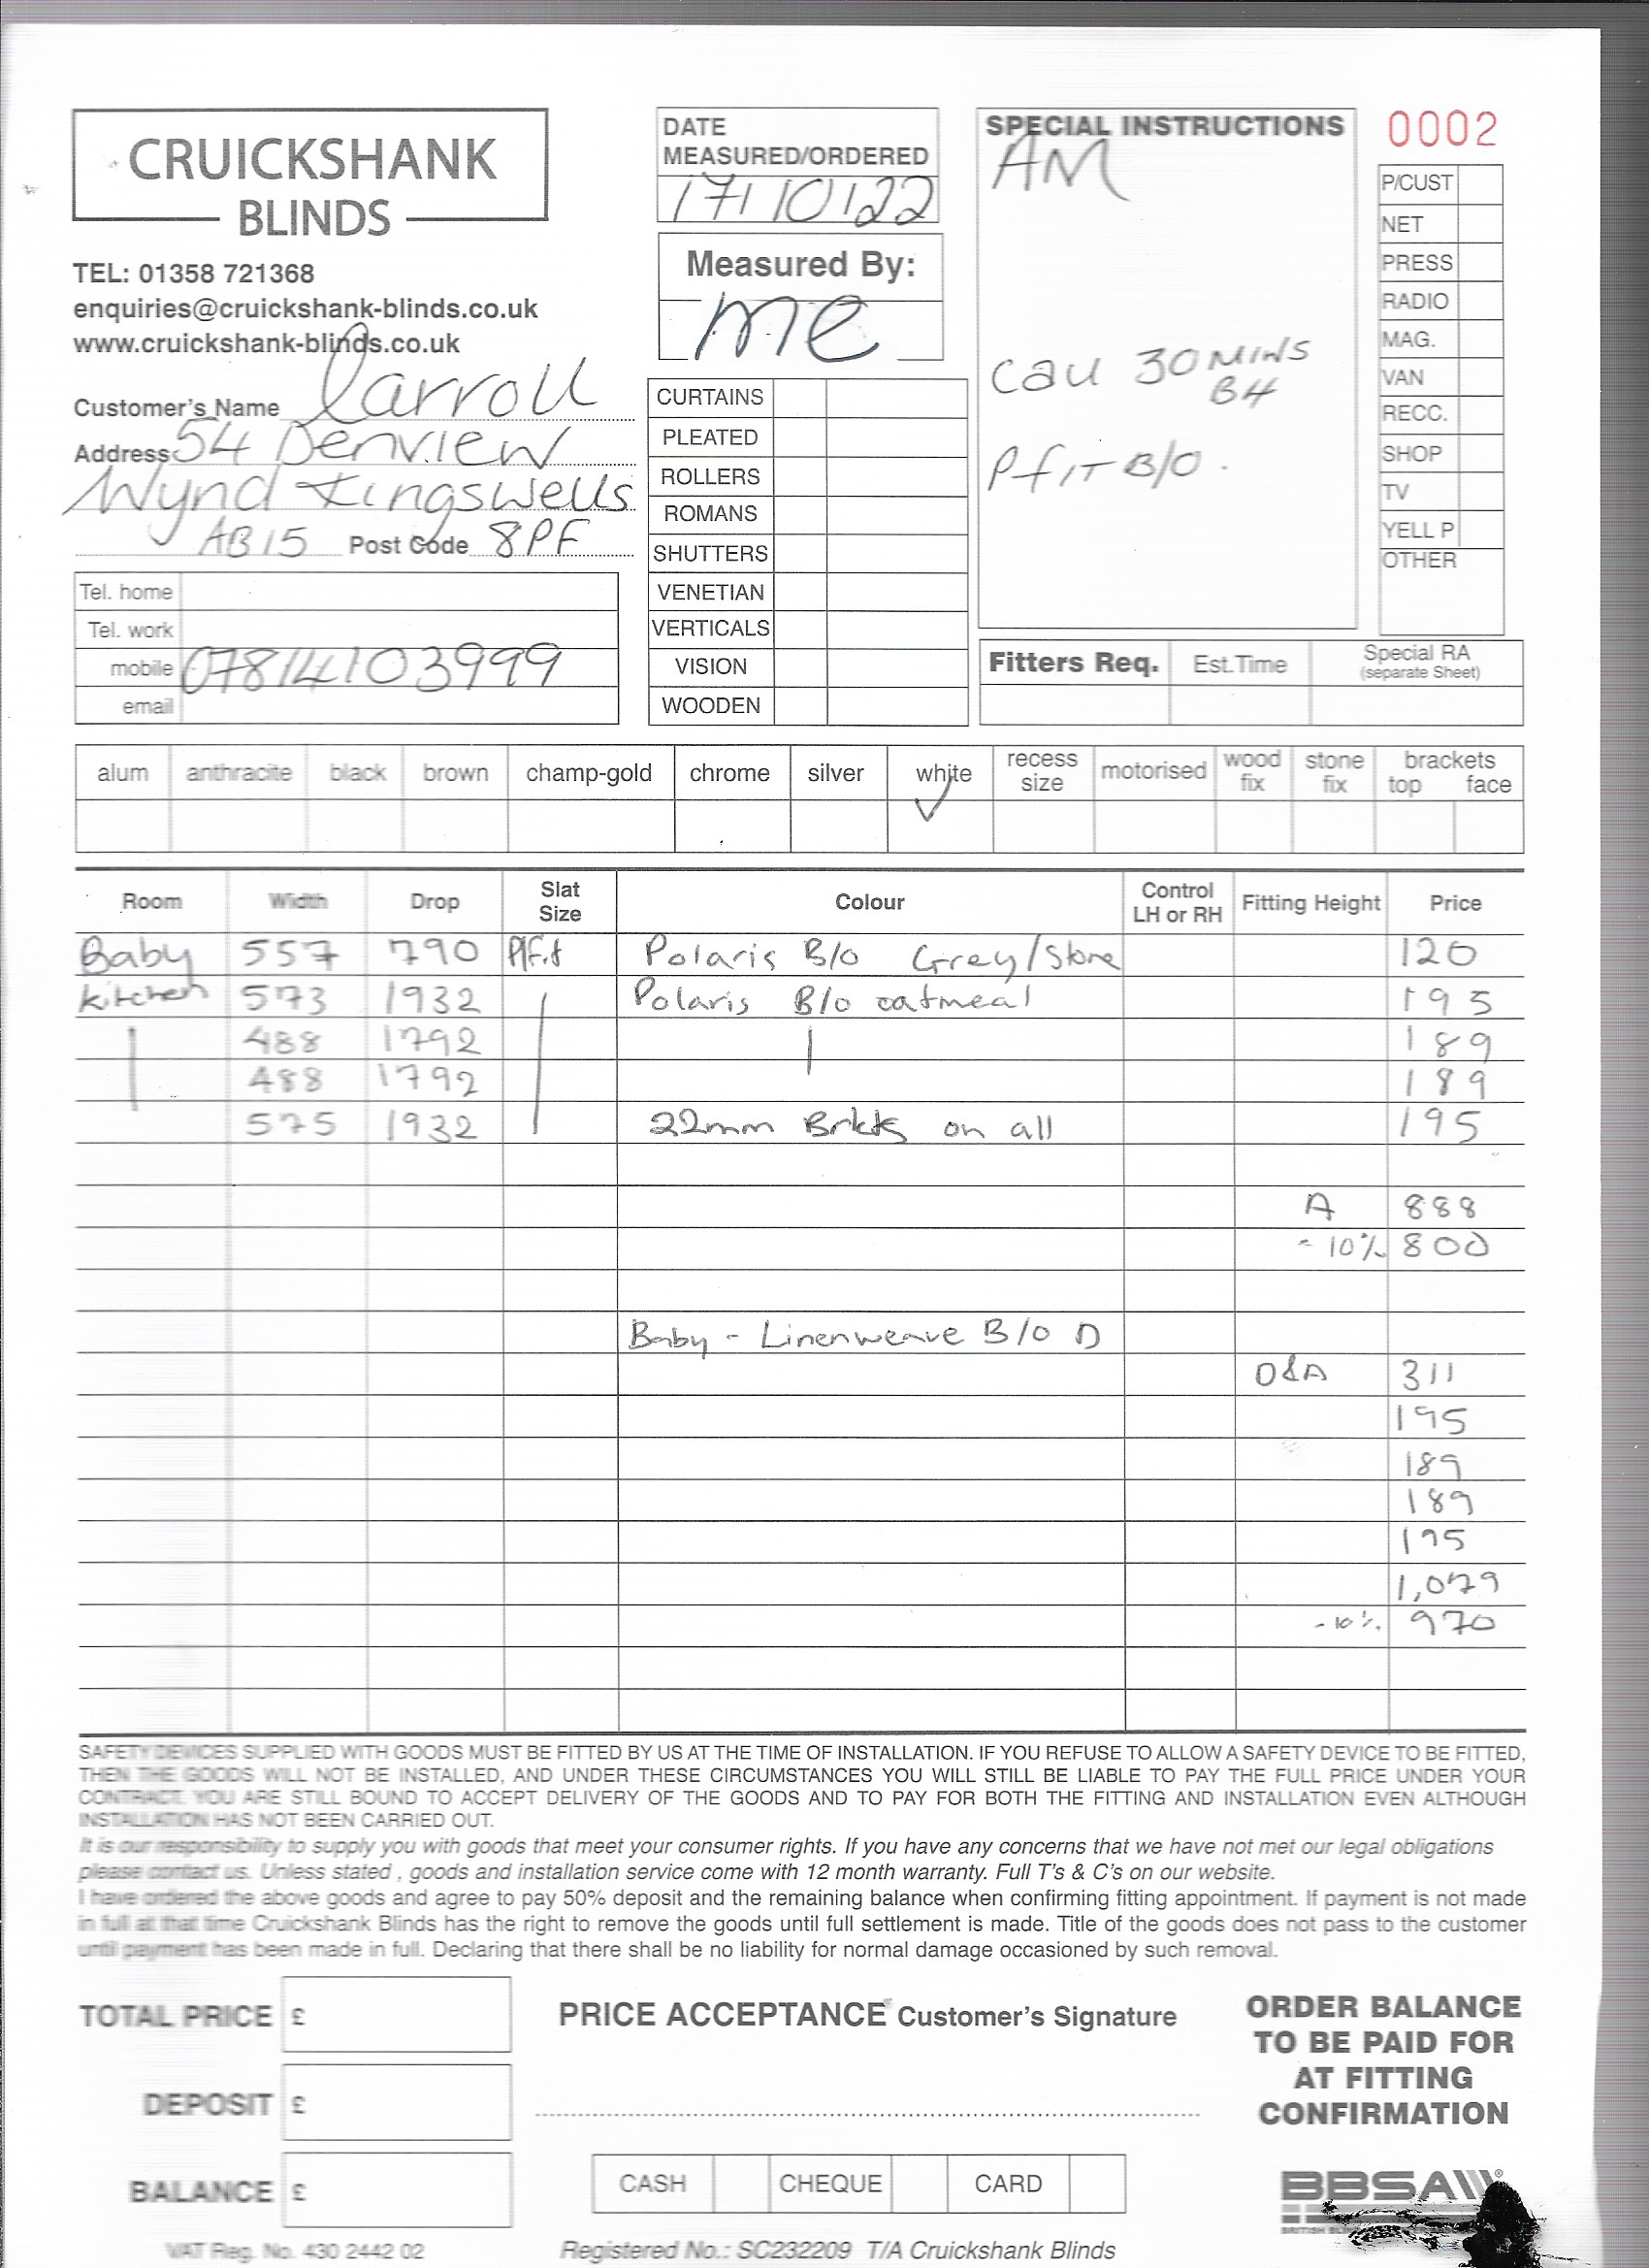 CRUICKSHANK
BLINDS
TEL: 01358 721368
enquiries@cruickshank-blinds.co.uk
www.cruickshank-blinds.co.uk
Customer's Name Carroll
Address 54 Denview
Wynd Kingswells
AB15 Post Code 8PF
Tel. home
Tel. work
mobile 07814103999
email
DATE
MEASURED/ORDERED
17/10/22
Measured By:
me
CURTAINS
PLEATED
ROLLERS
ROMANS
SHUTTERS
VENETIAN
VERTICALS
VISION
WOODEN
SPECIAL INSTRUCTIONS
AM
Call 30 MINS
B4
PfIT B/O.
0002
P/CUST
NET
PRESS
RADIO
MAG.
VAN
RECC.
SHOP
TV
YELL P
OTHER
Fitters Req. Est.Time Special RA
(separate Sheet)
alum anthracite black brown champ-gold chrome silver white recess size motorised wood fix stone fix brackets top face
Room Width Drop Slat Size Colour Control LH or RH Fitting Height Price
Baby 557 790 P/Fit Polaris B/o Grey/Stone 120
Kitchen 573 1932 Polaris B/o oatmeal 195
488 1792 189
488 1792 189
575 1932 22mm Brkts on all 195
A 888
- 10% 800
Baby - Linenweave B/o D
D&A 311
195
189
189
195
1,079
- 10% 970
SAFETY DEVICES SUPPLIED WITH GOODS MUST BE FITTED BY US AT THE TIME OF INSTALLATION. IF YOU REFUSE TO ALLOW A SAFETY DEVICE TO BE FITTED,
THEN THE GOODS WILL NOT BE INSTALLED, AND UNDER THESE CIRCUMSTANCES YOU WILL STILL BE LIABLE TO PAY THE FULL PRICE UNDER YOUR
CONTRACT. YOU ARE STILL BOUND TO ACCEPT DELIVERY OF THE GOODS AND TO PAY FOR BOTH THE FITTING AND INSTALLATION EVEN ALTHOUGH
INSTALLATION HAS NOT BEEN CARRIED OUT.
It is our responsibility to supply you with goods that meet your consumer rights. If you have any concerns that we have not met our legal obligations
please contact us. Unless stated , goods and installation service come with 12 month warranty. Full T's & C's on our website.
I have ordered the above goods and agree to pay 50% deposit and the remaining balance when confirming fitting appointment. If payment is not made
in full at that time Cruickshank Blinds has the right to remove the goods until full settlement is made. Title of the goods does not pass to the customer
until payment has been made in full. Declaring that there shall be no liability for normal damage occasioned by such removal.
TOTAL PRICE £
DEPOSIT £
BALANCE £
PRICE ACCEPTANCE Customer's Signature
CASH CHEQUE CARD
ORDER BALANCE
TO BE PAID FOR
AT FITTING
CONFIRMATION
BBSA
VAT Reg. No. 430 2442 02
Registered No.: SC232209 T/A Cruickshank Blinds